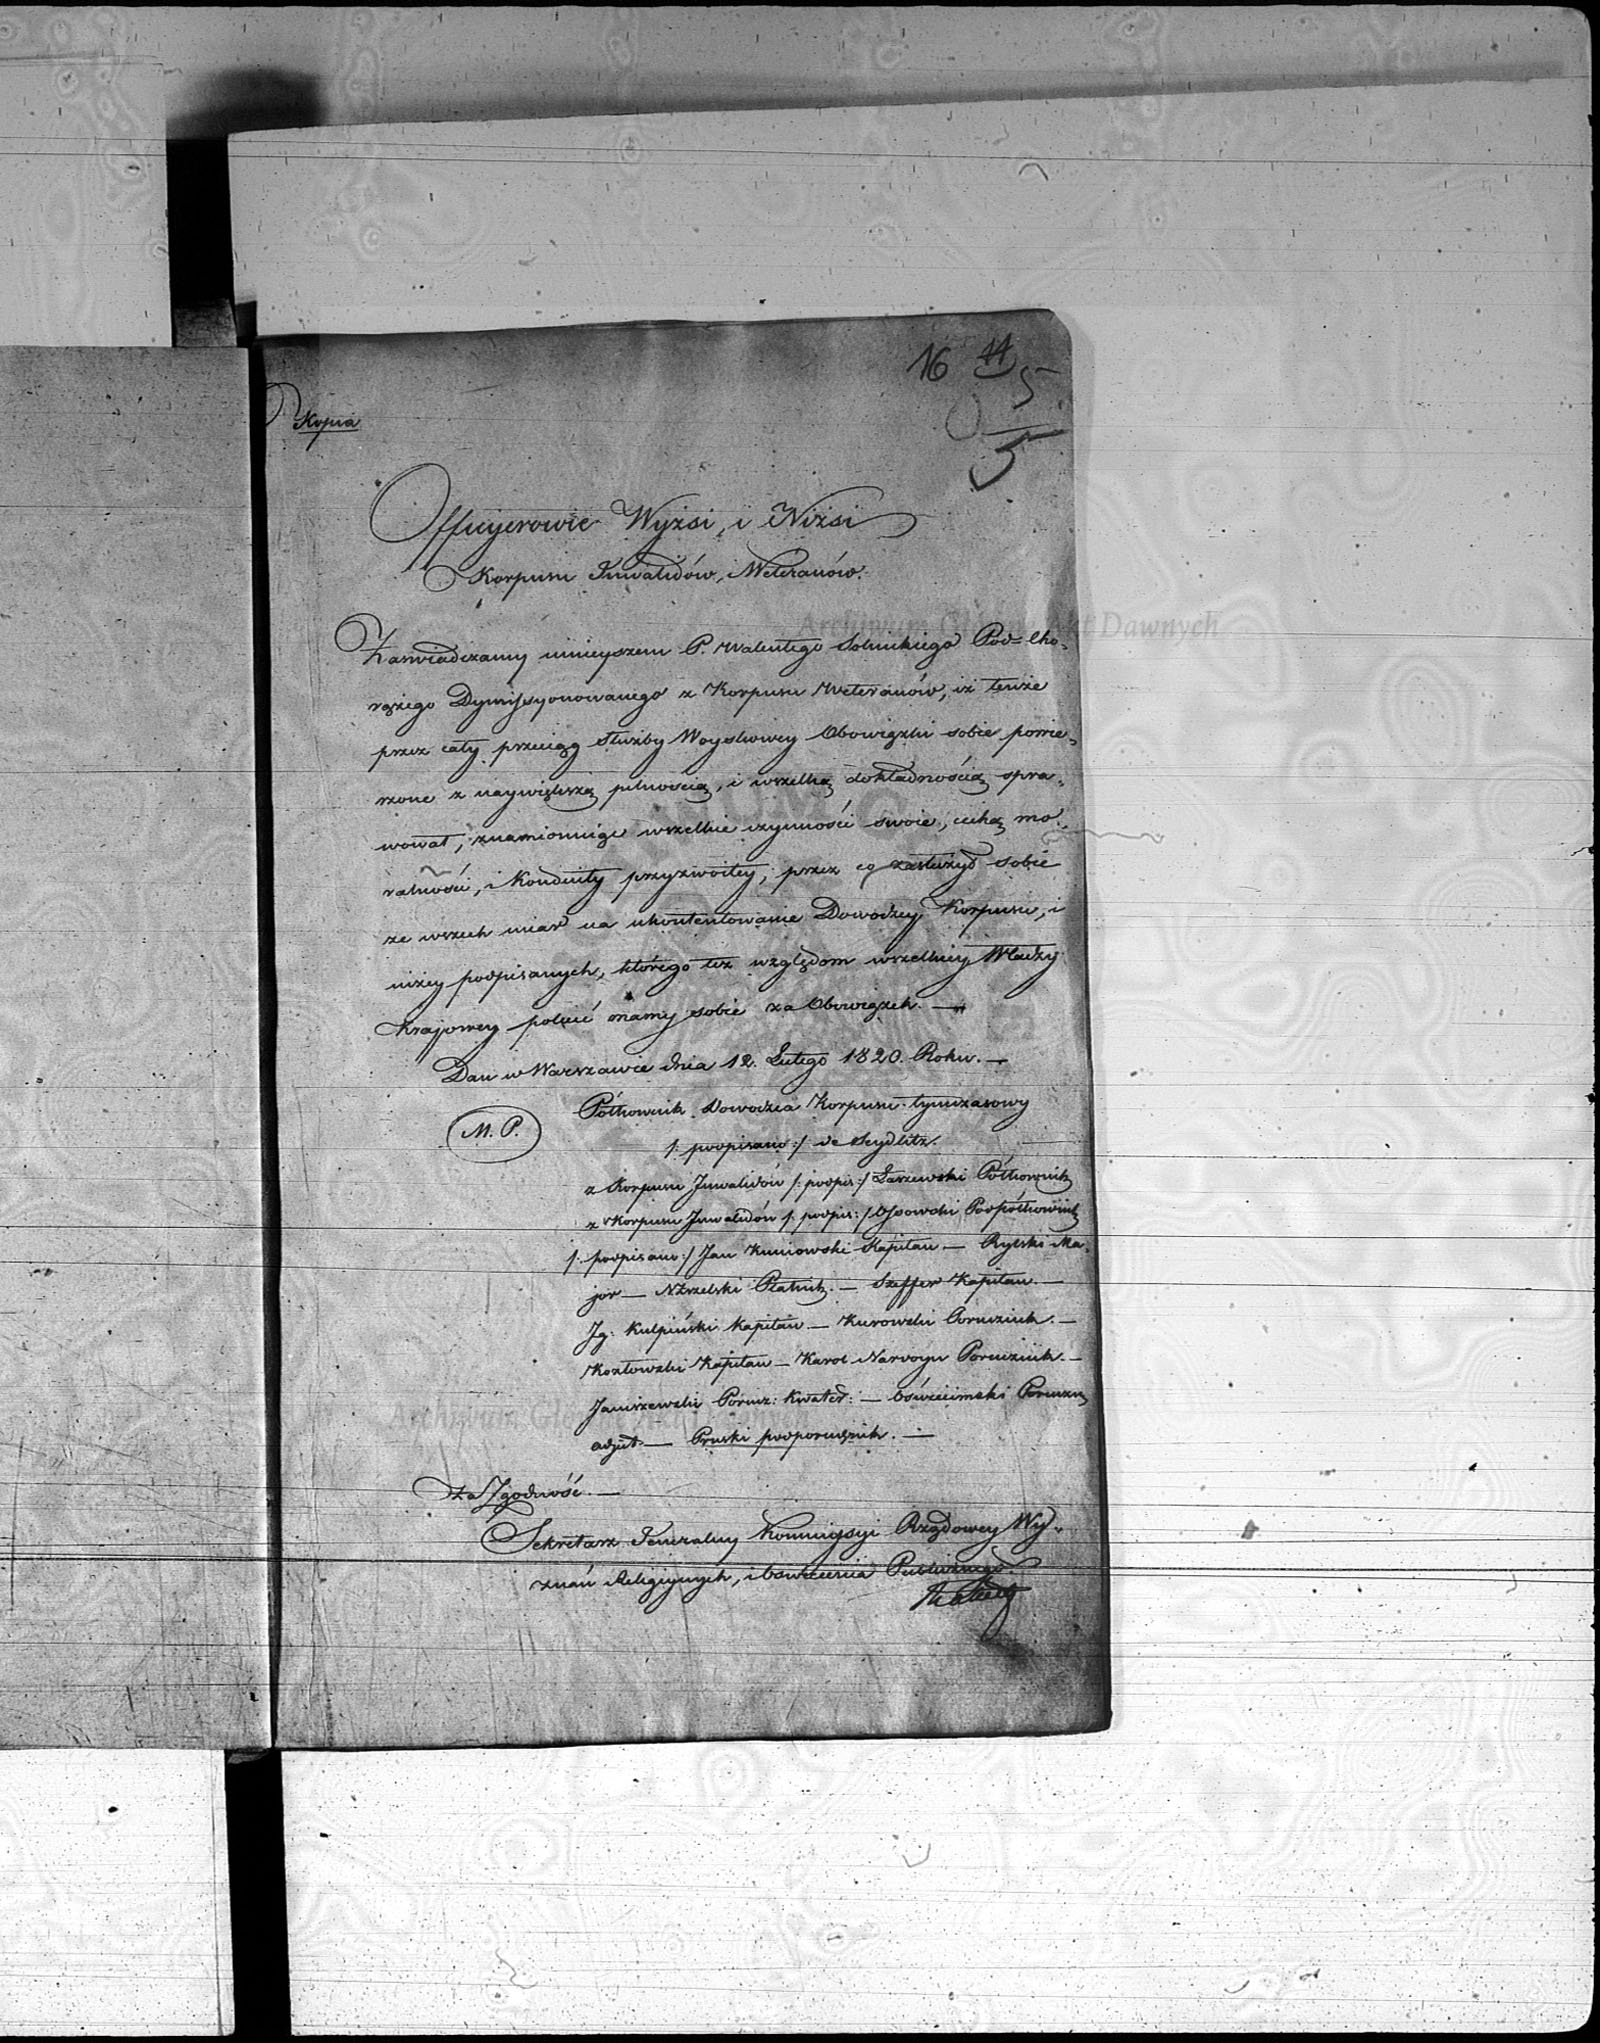 16 44 5
5
Kopia
Officyerowie Wyżsi, i Niżsi
Korpusu Inwalidów, i Weteranów.
Zaświadczamy ninieyszem P. Walentego Solnickiego Pod=Cho„
rążego Dymissyonowanego z Korpusu Weteranów, iż tenże
przez cały przeciąg służby Woyskowey Obowiązki sobie powie„
rzone z naywiększą pilnością, i wszelką dokładnością spra„
wował, znamionuiąc wszelkie czynności swoie, cechą mo„
ralności, i Konduity przyzwoitey, przez co zasłużył sobie
ze wszech miar na ukontentowanie Dowodzcy Korpusu, i
niżey podpisanych, którego też względom wszelkiey Władzy
Krajowey polecić mamy sobie za Obowiązek. —
Dan w Warszawie dnia 12. Lutego 1820. Roku. —
M. P.
Półkownik Dowodzca Korpusu tymczasowy
/: podpisano :/ de Seydlitz.
z Korpusu Inwalidów /: podpis :/ Łaszewski Półkownik
z Korpusu Inwalidów /: podpis :/ Ossowski Podpółkownik
/: podpisano :/ Jan Kuniowski Kapitan — Rylski Ma„
jor — Płatnik. — Szeffer Kapitan. —
Ig: Kulpiński Kapitan — Kurowski Porucznik. —
Kozłowski Kapitan — Karol Narvoyn Porucznik. —
Janiszewski Porucz: Kwater: — Oświecimski Porucznik
adjut — Pruski podporucznik. —
Za Zgodność. —
Sekretarz Jeneralny Kommissyi Rządowey Wy„
znań Religiynych, i Oświecenia Publicznego.
Archiwum Główne Akt Dawnych
Archiwum Główne Akt Dawnych